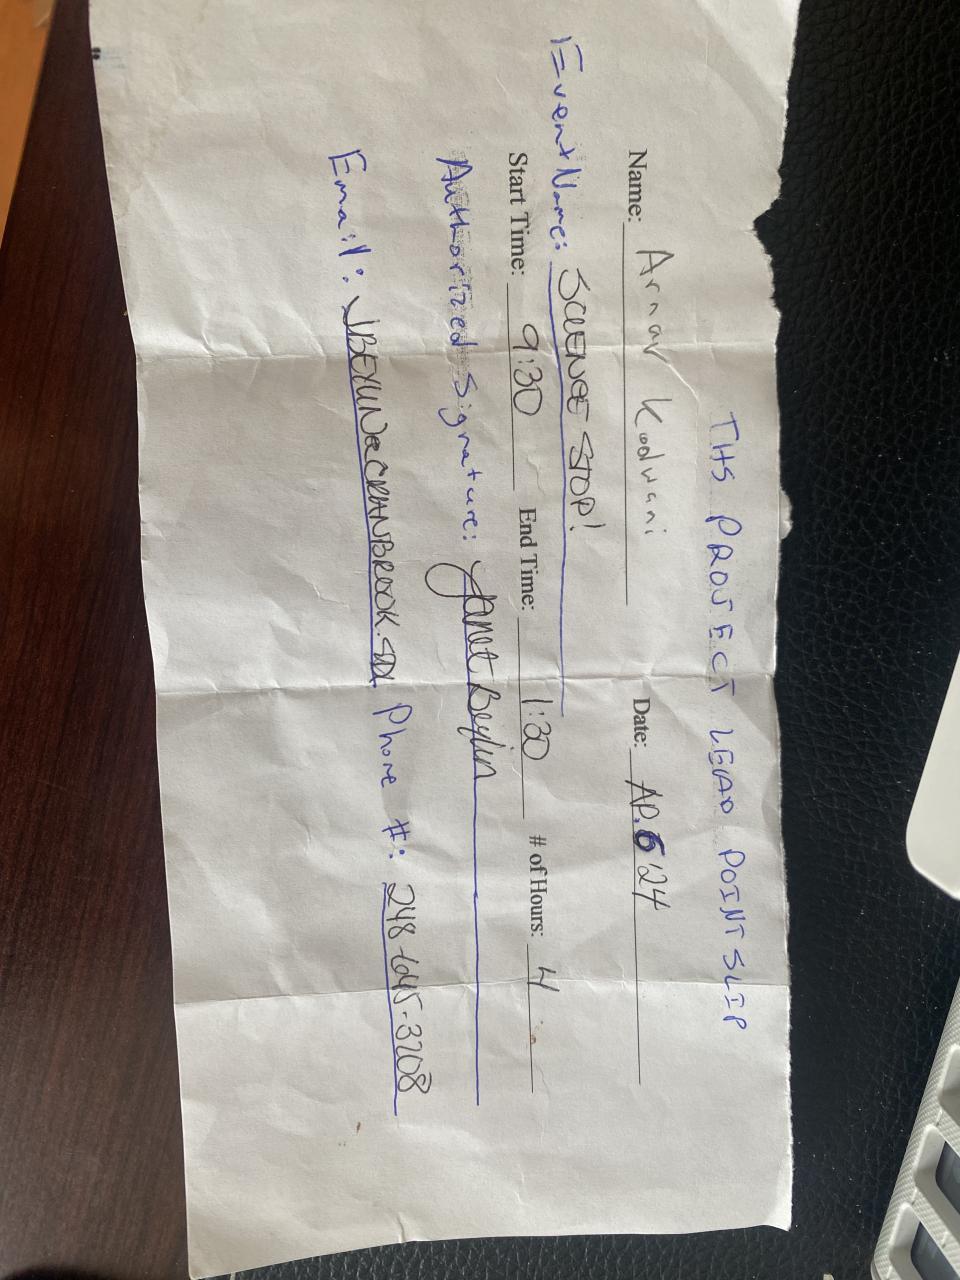 THS PROJECT LEAD POINT SLIP
Name: Arnav Kodwani Date: AP. 6 24
Event Name: SCIENCE STOP!
Start Time: 9:30 End Time: 1:30 # of Hours: 4
Authorized Signature: Janet Beylin
Email: JBEYLIN@CRANBROOK.EDU Phone #: 248-645-3208